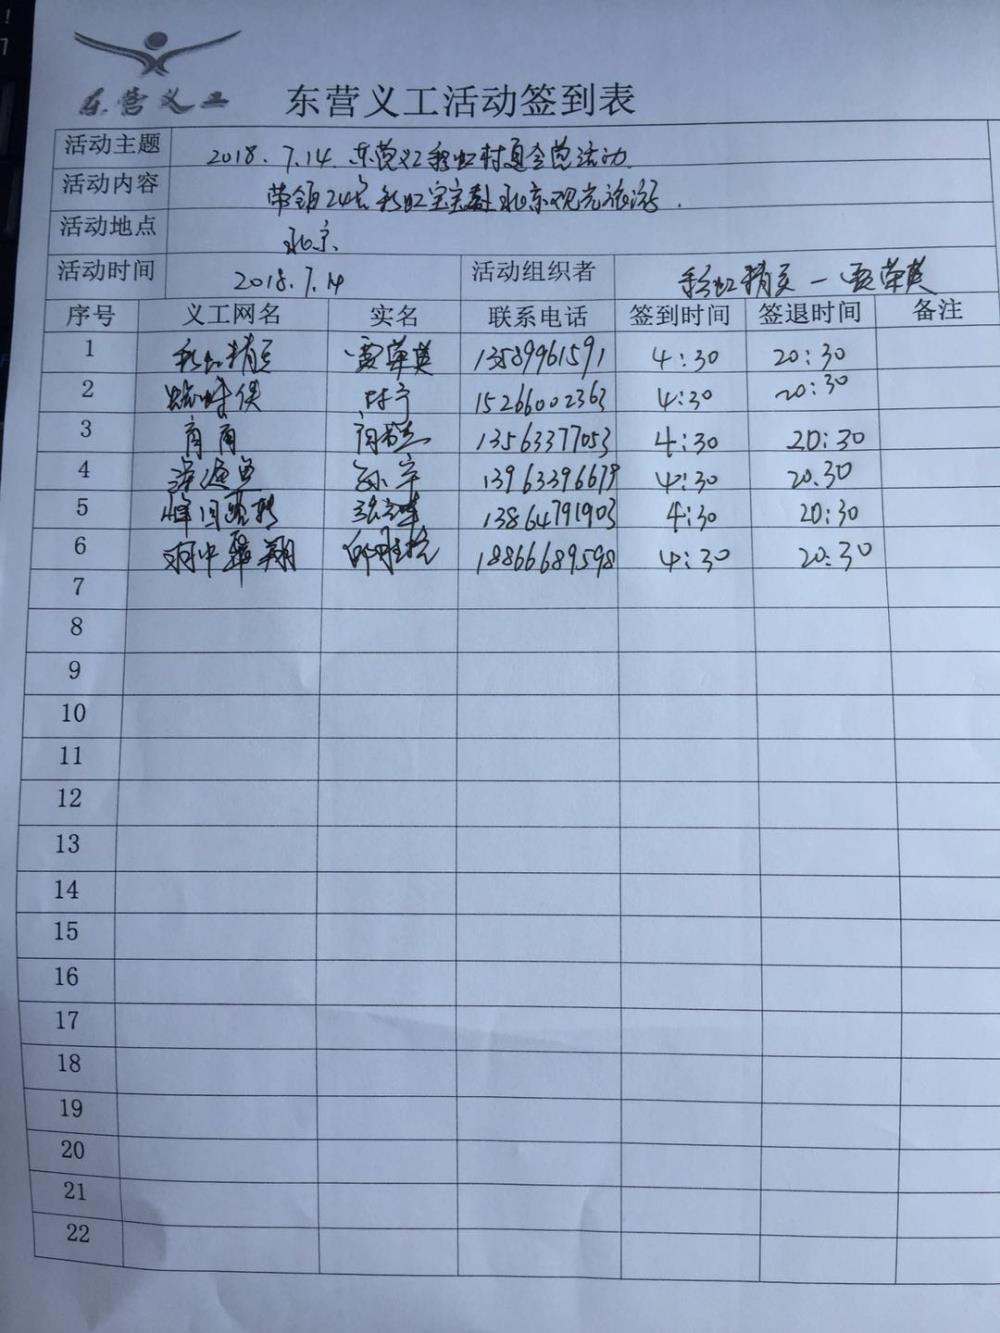 东营义工 东营义工活动签到表
活动主题 2018.7.14.东营义工彩虹村 活动
活动内容 带领24名彩虹宝宝赴北京观光旅游.
活动地点 北京
活动时间 2018.7.14 活动组织者 彩虹精灵—贾荣英
序号 义工网名 实名 联系电话 签到时间 签退时间 备注
1 彩虹精灵 贾荣英 13589961591 4:30 20:30
2 蜘蛛侠 15266002363 4:30 20:30
3 13563377053 4:30 20:30
4 孙宇 13963396679 4:30 20.30
5 峰回路转 13864791903 4:30 20:30
6 雨中飞翔 18866689598 4:30 20:30
7
8
9
10
11
12
13
14
15
16
17
18
19
20
21
22